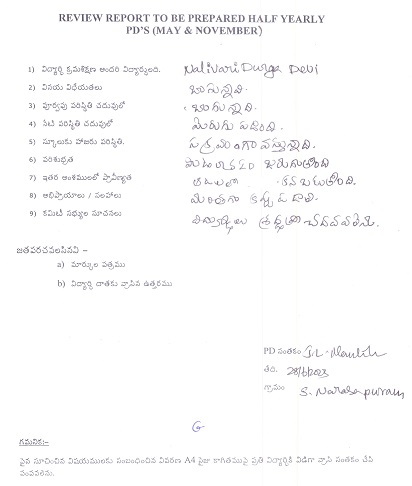 REVIEW REPORT TO BE PREPARED HALF YEARLY
PD'S (MAY & NOVEMBER)
1) విద్యార్థి క్రమశిక్షణ అందరి విద్యార్థులది. Nalivari Durga Devi
2) వినయ విధేయతలు బాగున్నాది.
3) పూర్వపు పరిస్థితి చదువులో బాగున్నది.
4) నేటి పరిస్థితి చదువులో మెరుగు పడింది.
5) స్కూలుకు హాజరు పరిస్థితి. సక్రమంగా వస్తున్నాది.
6) పరిశుభ్రత జరుగుతోంది
7) ఇతర అంశములలో ప్రావీణ్యత కనబరుతోంది.
8) అభిప్రాయాలు / సలహాలు
9) కమిటీ సభ్యుల సూచనలు
జతపరచవలసినవి :-
a) మార్కుల పత్రము
b) విద్యార్థి దాతకు వ్రాసిన ఉత్తరము
PD సంతకం
తేది. 28/6/2023
గ్రామం S. Narasapuram
గమనిక:-
పైన సూచించిన విషయములకు సంబంధించిన వివరణ A4 సైజు కాగితముపై ప్రతి విద్యార్థికి విడిగా వ్రాసి సంతకం చేసి
పంపవలెను.